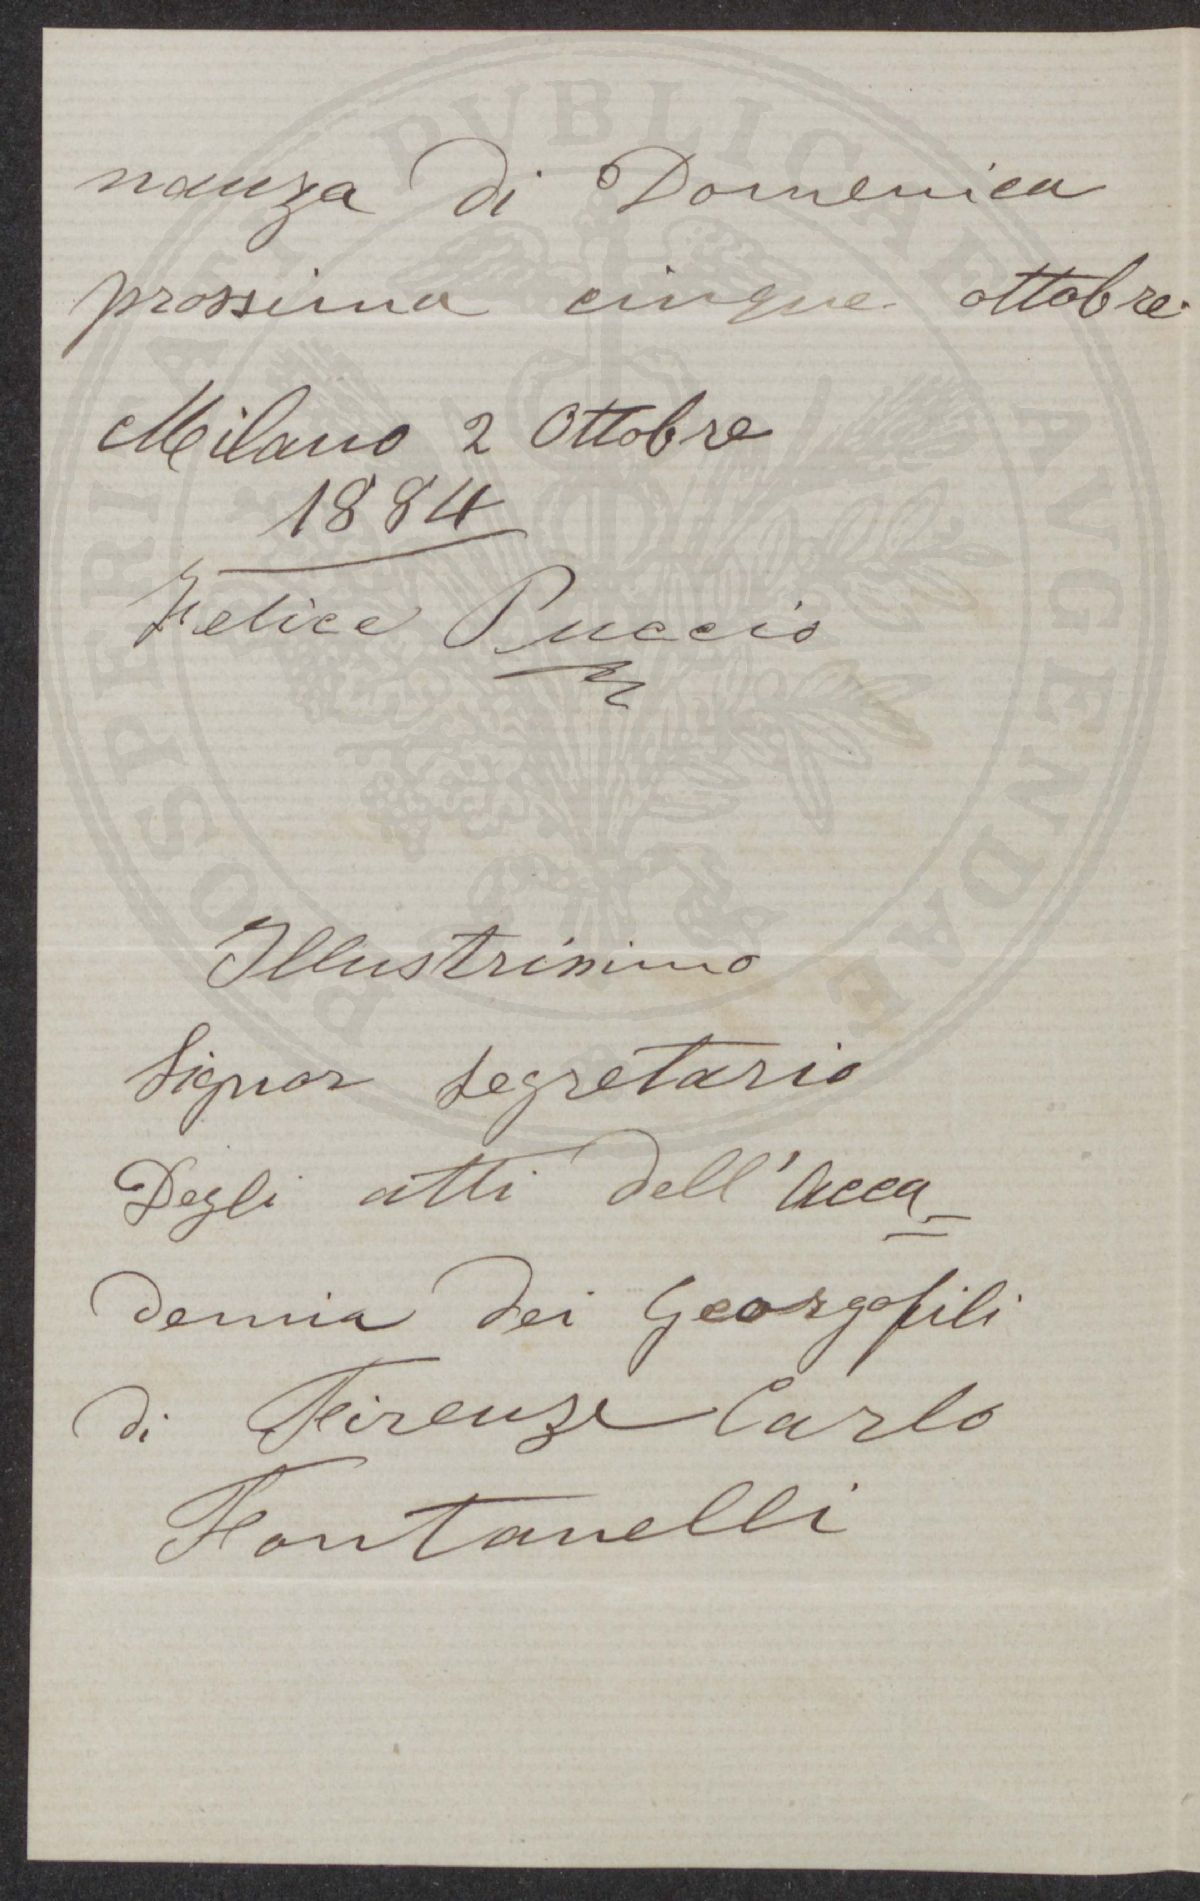 nanza di Domenica
prossima cinque ottobre.
Milano 2 Ottobre
1884
Felice Puccio
Illustrissimo
Signor segretario
Degli atti dell'Acca=
demia dei Georgofili
di Firenze Carlo
Fontanelli
PROSPERITATI PVBLICAE AVGENDAE